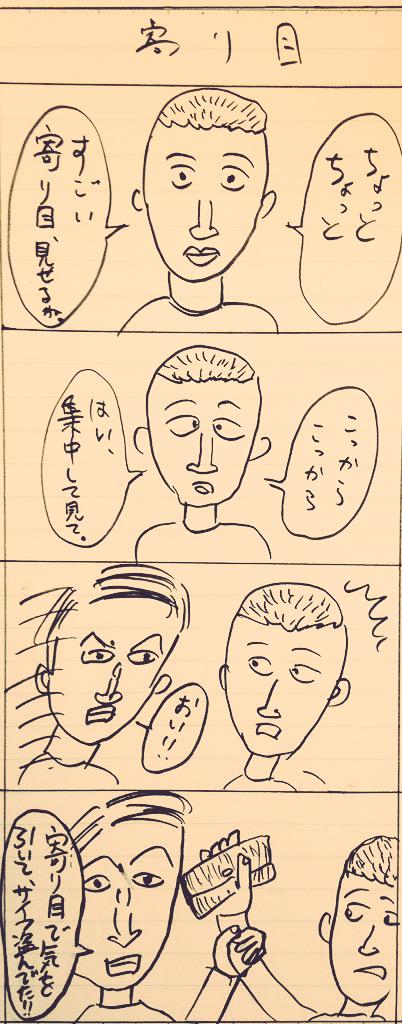 寄り目
ちょっと
ちょっと
すごい
寄り目、見せるか。
こっから
こっから
はい、
集中して見て。
おい!!
寄り目で気を
引いて、サイフ盗んでた!!